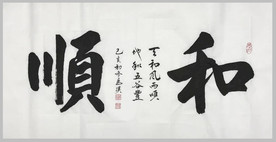 和順
天和風雨順
地和五谷豐
己亥初冬